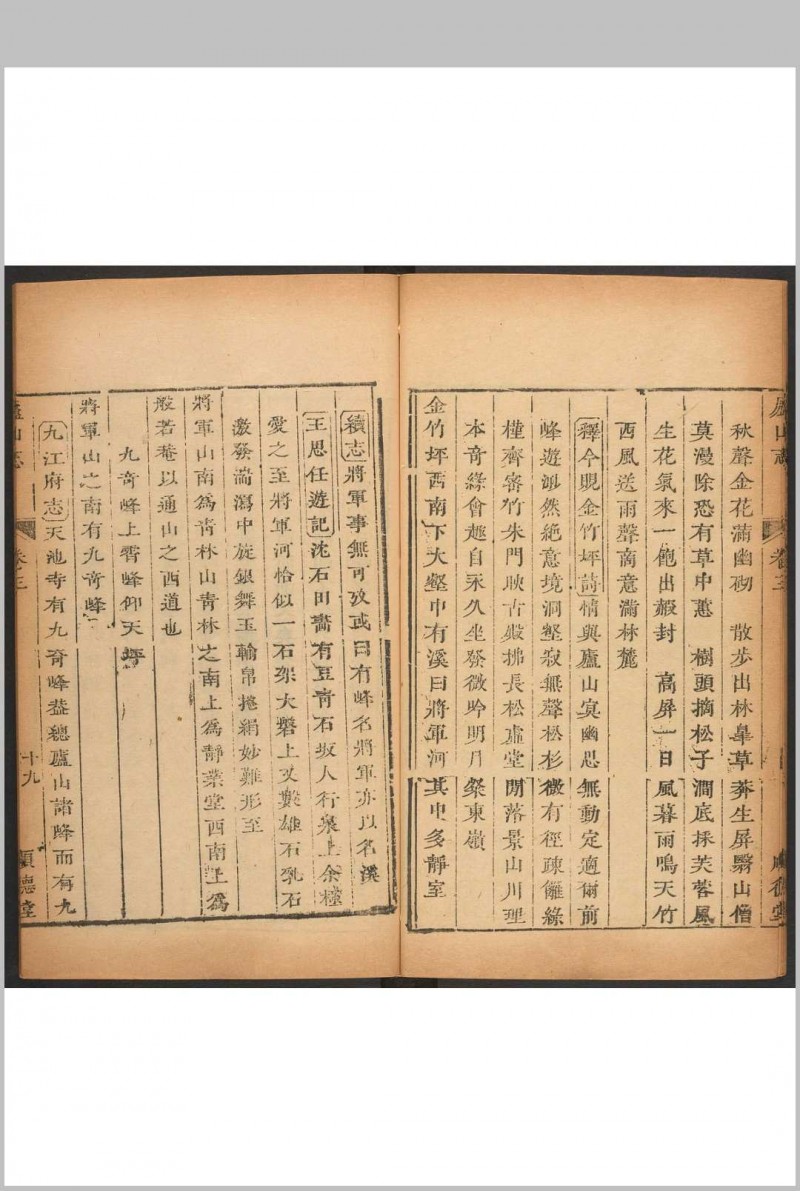 廬山志 卷三
秋聲金花滿幽砌 散步出林臯草莽生屏翳山僧
莫漫除恐有草中蕙 樹頭摘松子澗底採芙蓉風
生花氣來一飽出嚴封 高屏一日風暮雨鳴天竹
西風送雨聲南意滿林麓
釋今覞金竹坪詩情與廬山寞幽思無動定適爾前
峰遊泯然絶意境洞壑寂無聲松杉微有徑疎籬綠
槿齊密竹朱門映古殿拂長松虛堂閉落景山川理
本奇緣會趣自永久坐發微吟明月粲東嶺
金竹坪西南下大壑中有溪曰將軍河其中多靜室
續志將軍事無可攷或曰有峰名將軍亦以名溪
王思任遊記沈石田畵有豆青石坂人行泉上余極
愛之至將軍河恰似一石架大磐上丈數雄石乳石
激發湍瀉中旋銀舞玉翰帛捲絹妙難形至
將軍山南爲青林山青林之南上爲靜業堂西南上爲
般若菴以通山之西道也
九奇峰上霄峰仰天坪
將軍山之南有九奇峰
九江府志天池寺有九奇峰葢總廬山諸峰而有九
廬山志 卷三 十九 順德堂